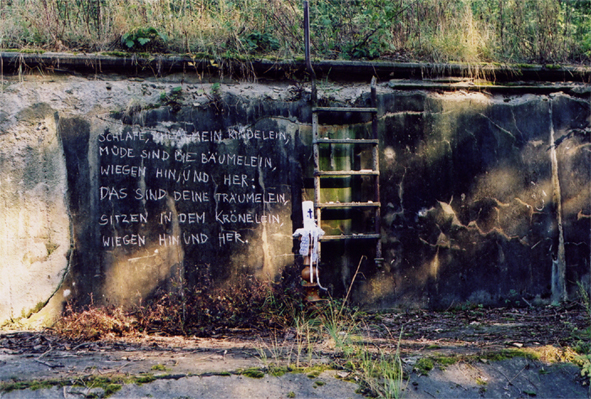 SCHLAFE, SCHLAF MEIN KINDELEIN,
MÜDE SIND DIE BÄUMELEIN,
WIEGEN HIN UND HER.
DAS SIND DEINE TRÄUMELEIN,
SITZEN IN DEM KRÖNELEIN
WIEGEN HIN UND HER.